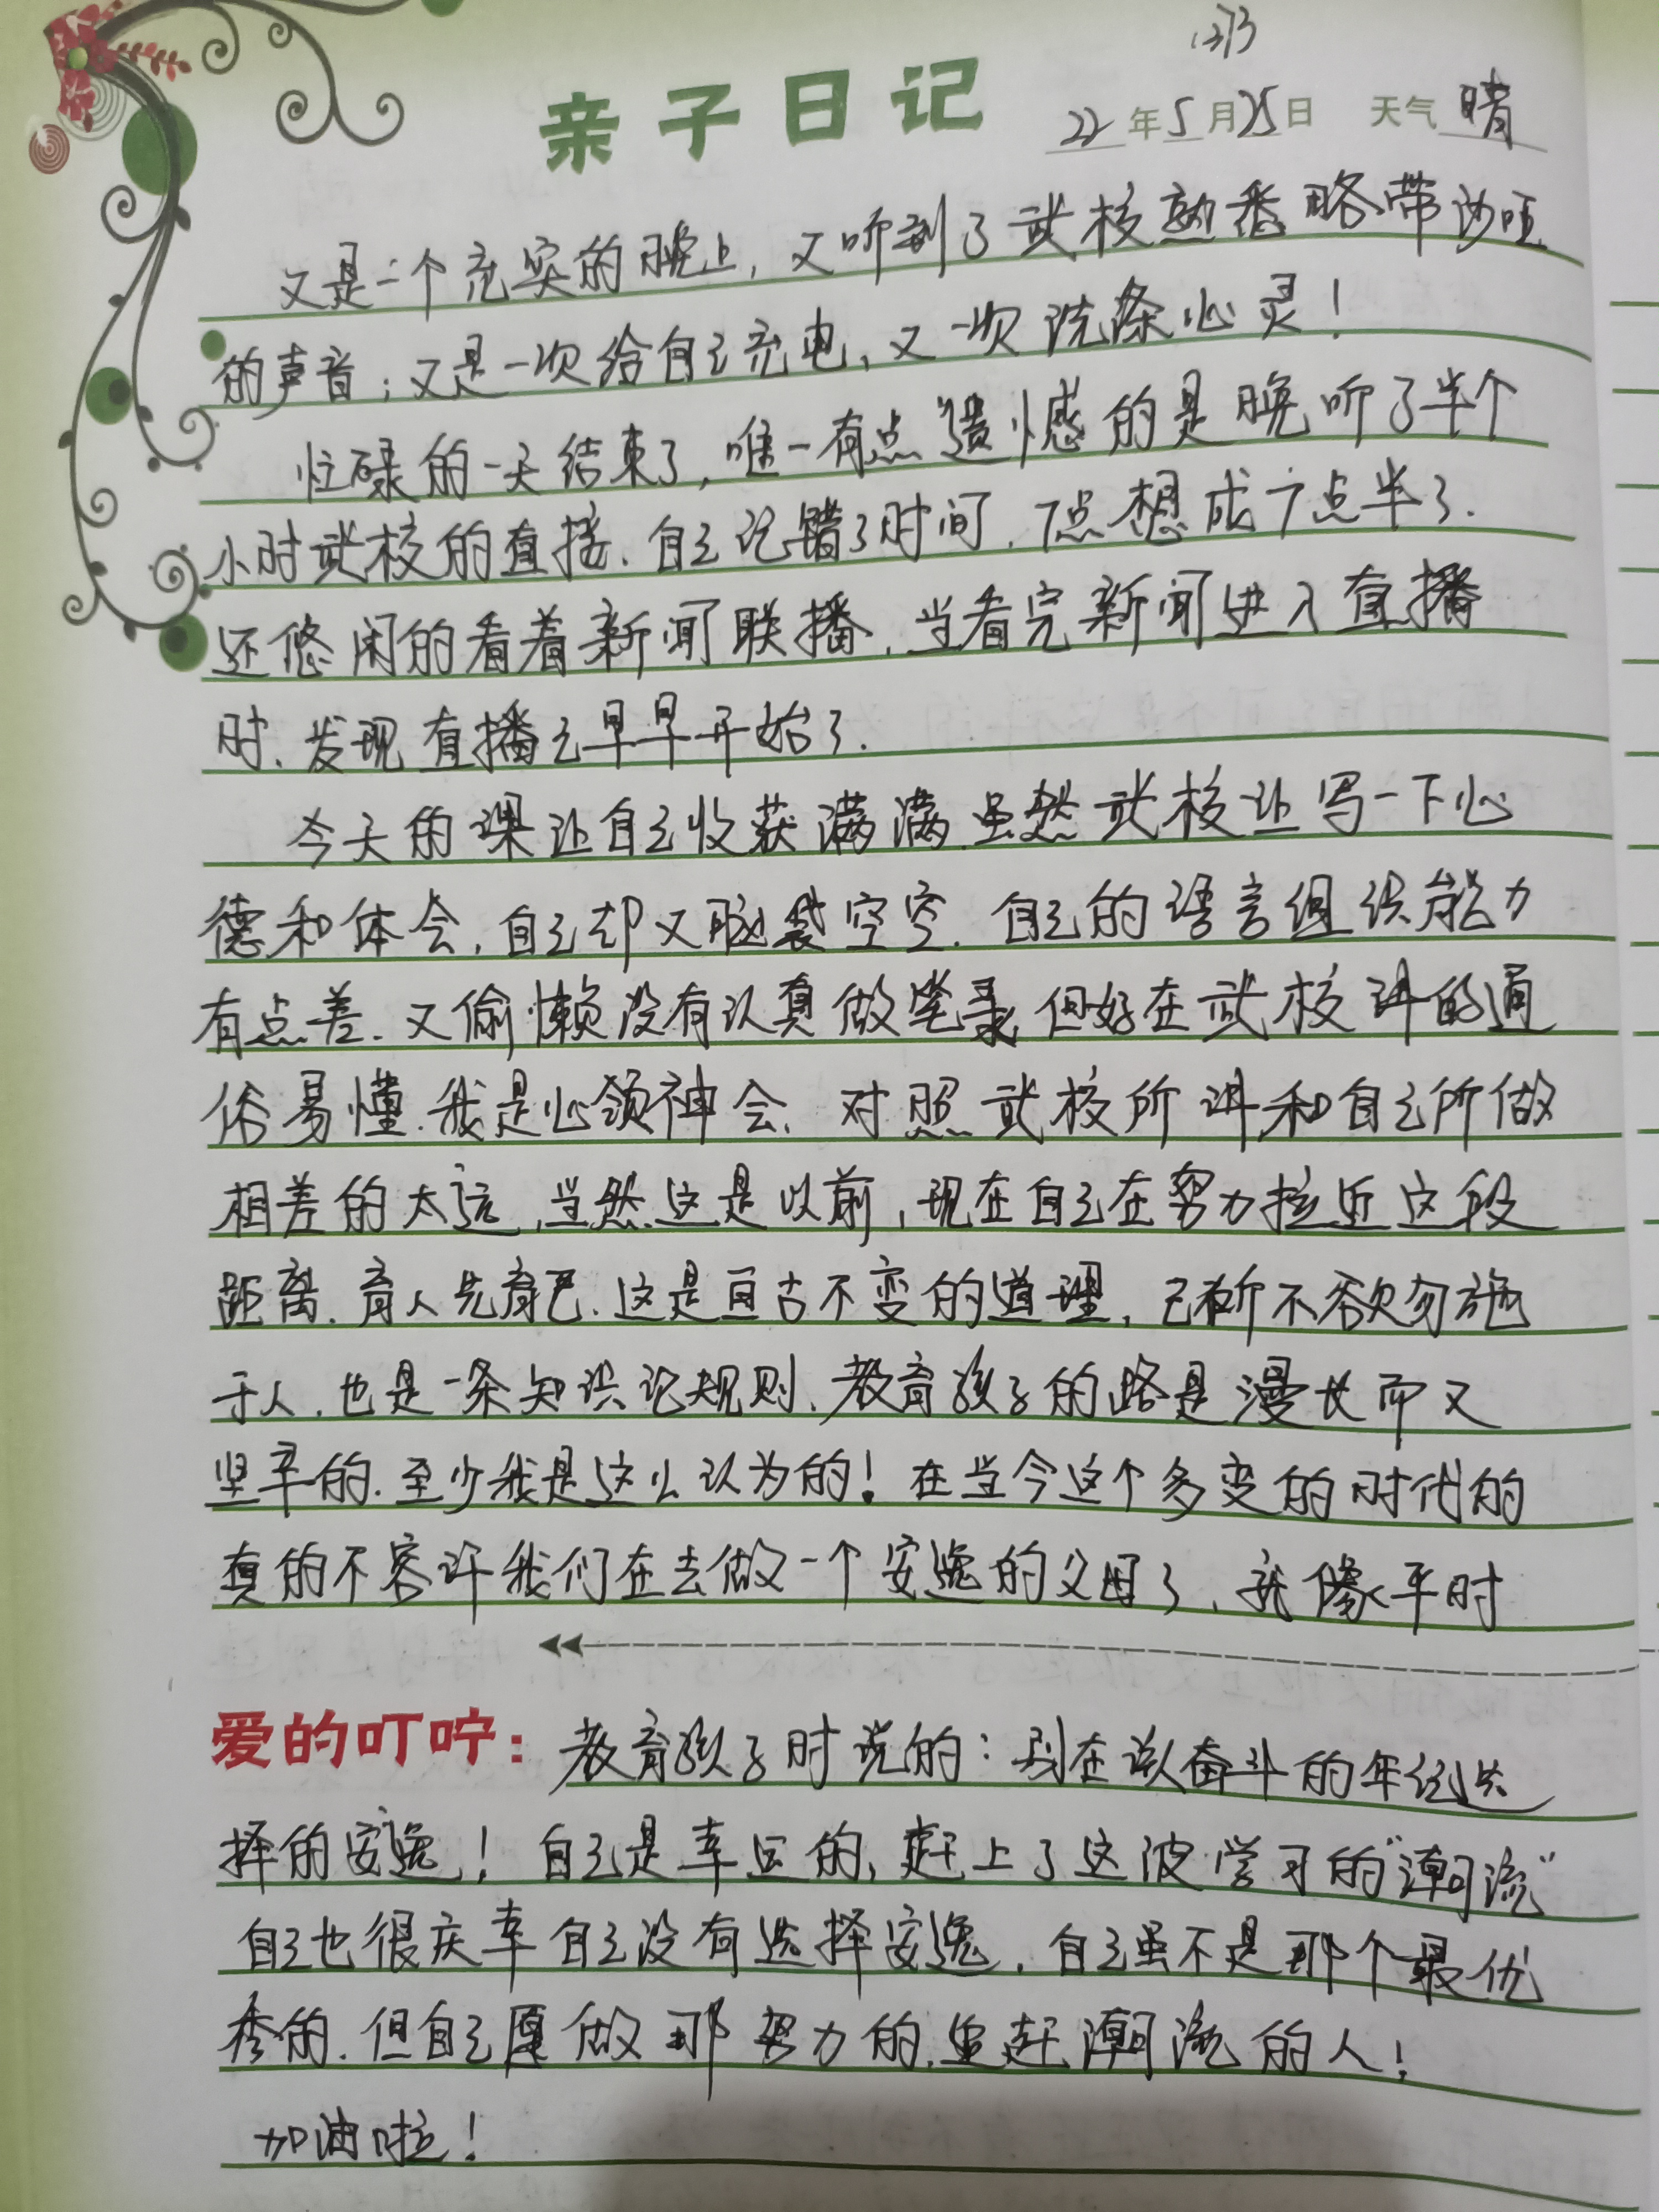 273
亲子日记
22年5月25日 天气晴
又是一个充实的晚上，又听到了武校熟悉略带沙哑
的声音；又是一次给自己充电、又一次洗涤心灵！
忙碌的一天结束了，唯一有点遗憾的是晚听了半个
小时武校的直播、自己记错了时间，7点想成7点半了.
还悠闲的看着新闻联播，当看完新闻进入直播
时、发现直播已早早开始了.
今天的课让自己收获满满.虽然武校让写一下心
德和体会，自己却又脑袋空空.自己的语言组织能力
有点差.又偷懒没有认真做笔录.但好在武校讲的通
俗易懂.我是心领神会、对照武校所讲和自己所做
相差的太远，当然这是以前，现在自己在努力接近这段
距离.育人先育己.这是亘古不变的道理，己所不欲勿施
于人.也是一条知识记规则、教育孩子的路是漫长而又
坚辛的.至少我是这么认为的！在当今这个多变的时代的
真的不容许我们在去做一个安逸的父母了，就像平时
爱的叮咛：教育孩子时说的：别在该奋斗的年纪选
择的安逸！自己是幸运的，赶上了这波学习的“潮流”
自己也很庆幸自己没有选择安逸.自己虽不是那个最优
秀的.但自己愿做那努力的.追赶潮流的人！
加油啦！